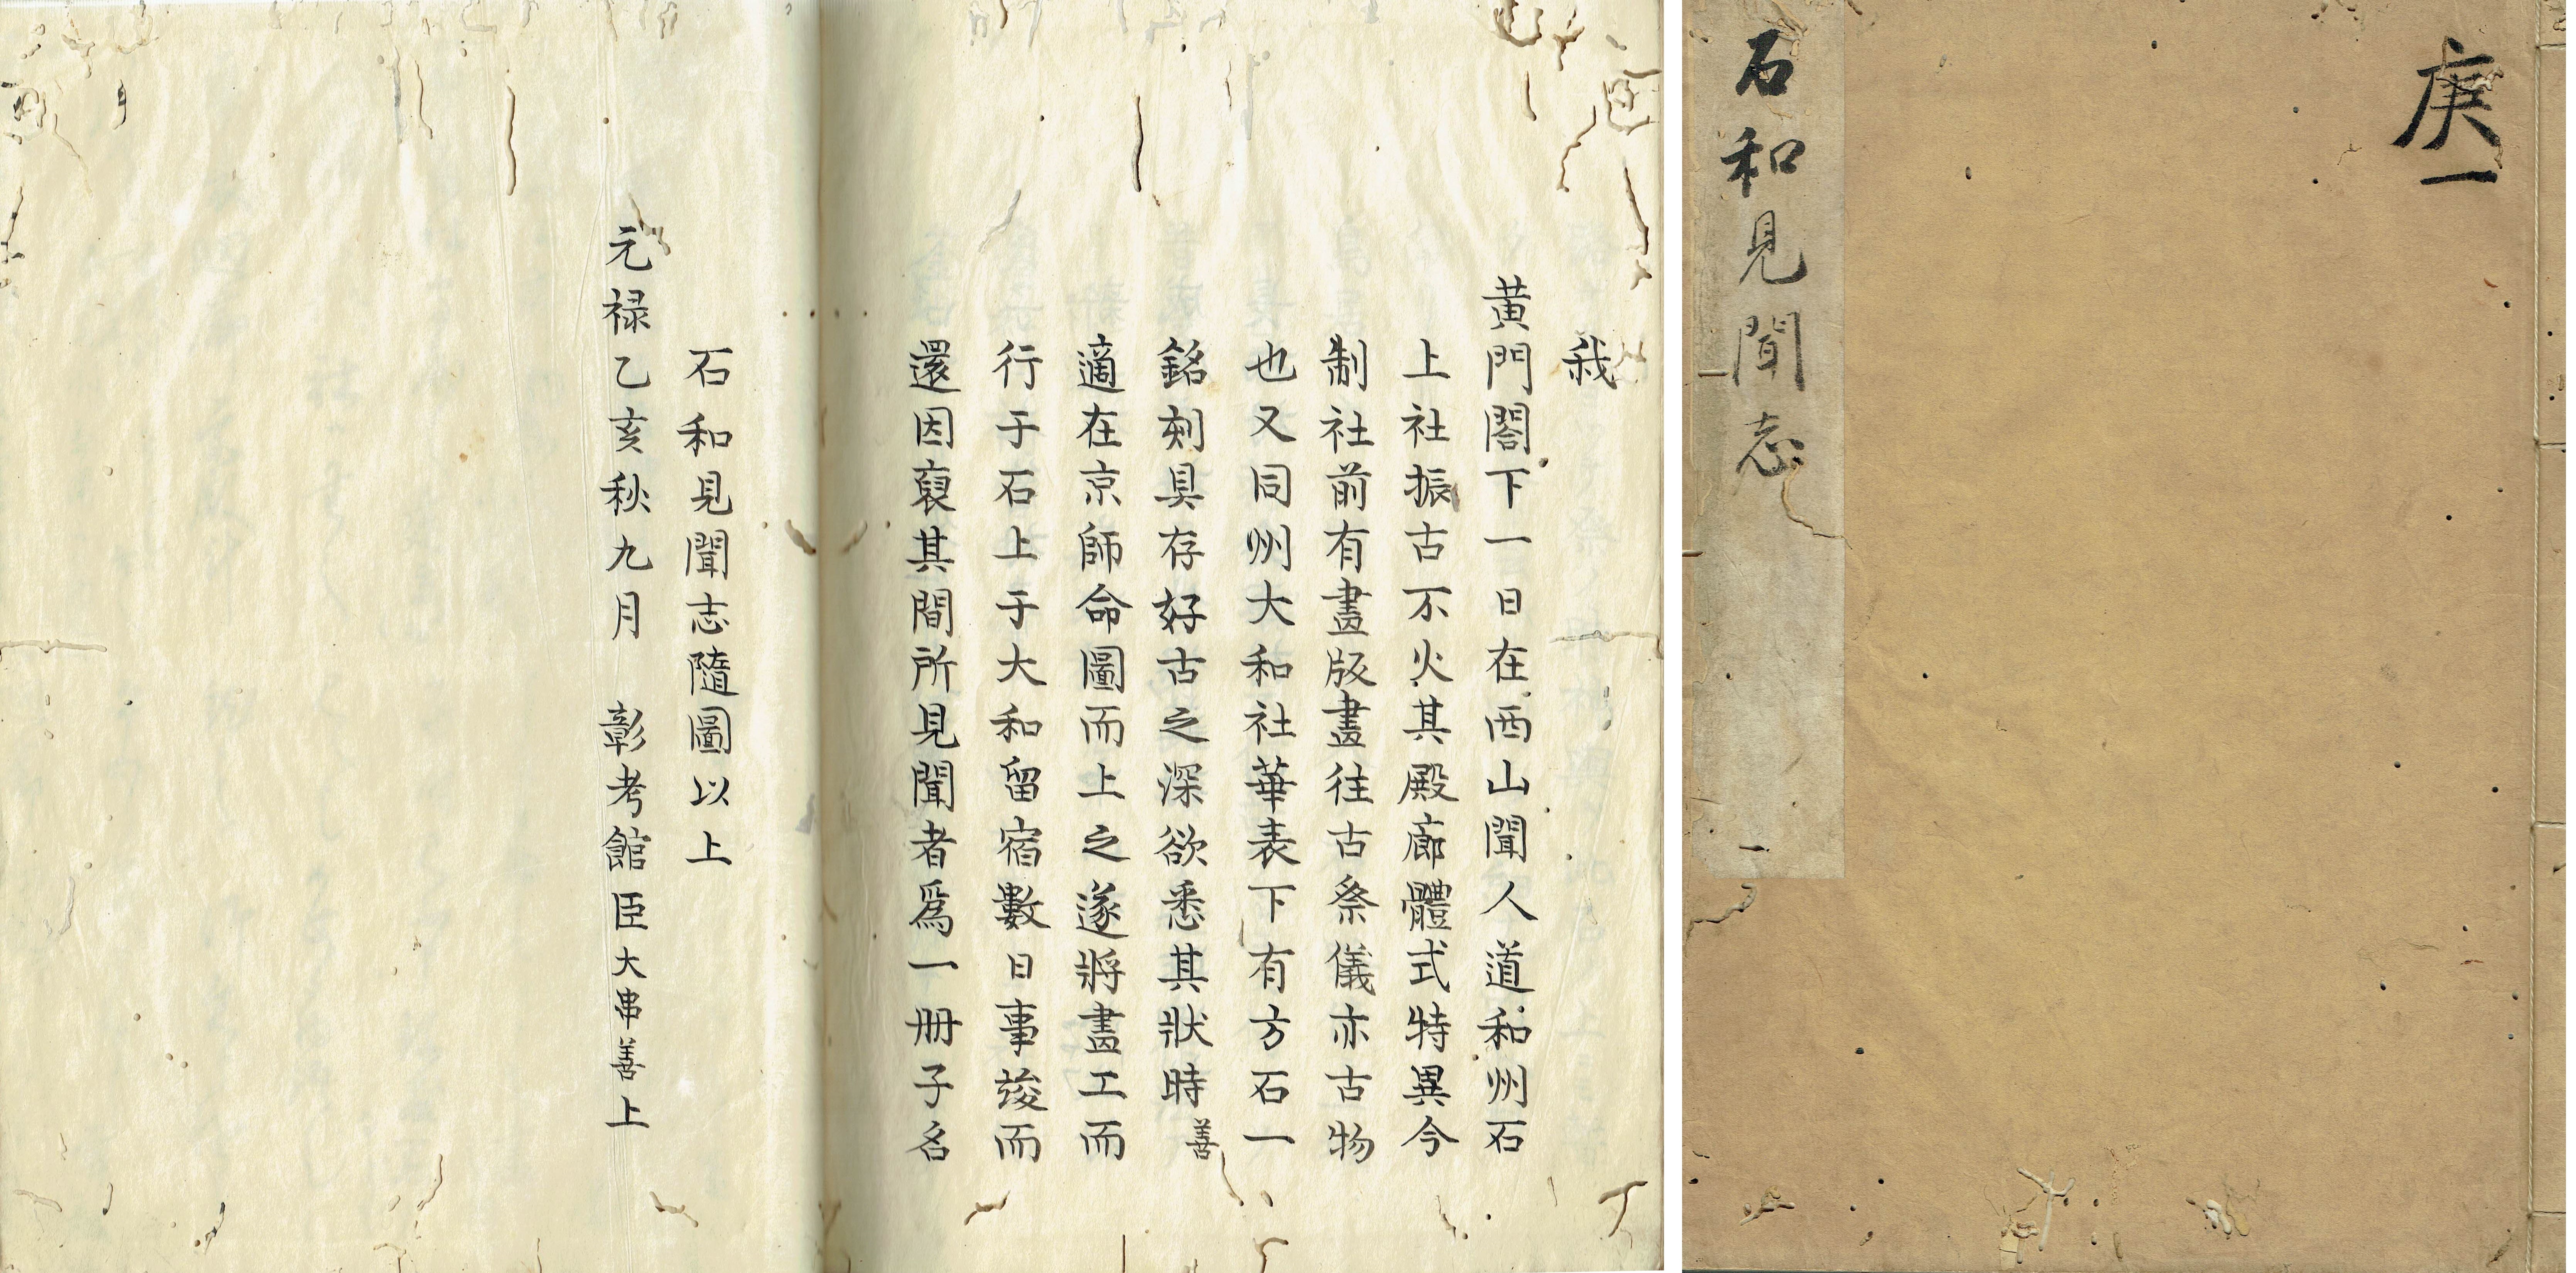 庚一
石和見聞志 一
我
黄門閤下一日在西山聞人道和州石
上社振古不火其殿廊體式特異今
制社前有畫版畫往古祭儀亦古物
也又同州大和社華表下有方石一
銘刻具存好古之深欲悉其狀時善
適在京師命圖而上之遂將畫工而
行于石上于大和留宿數日事竣而
還因裒其間所見聞者爲一冊子名
石和見聞志隨圖以上
元禄乙亥秋九月 彰考館臣大串善上